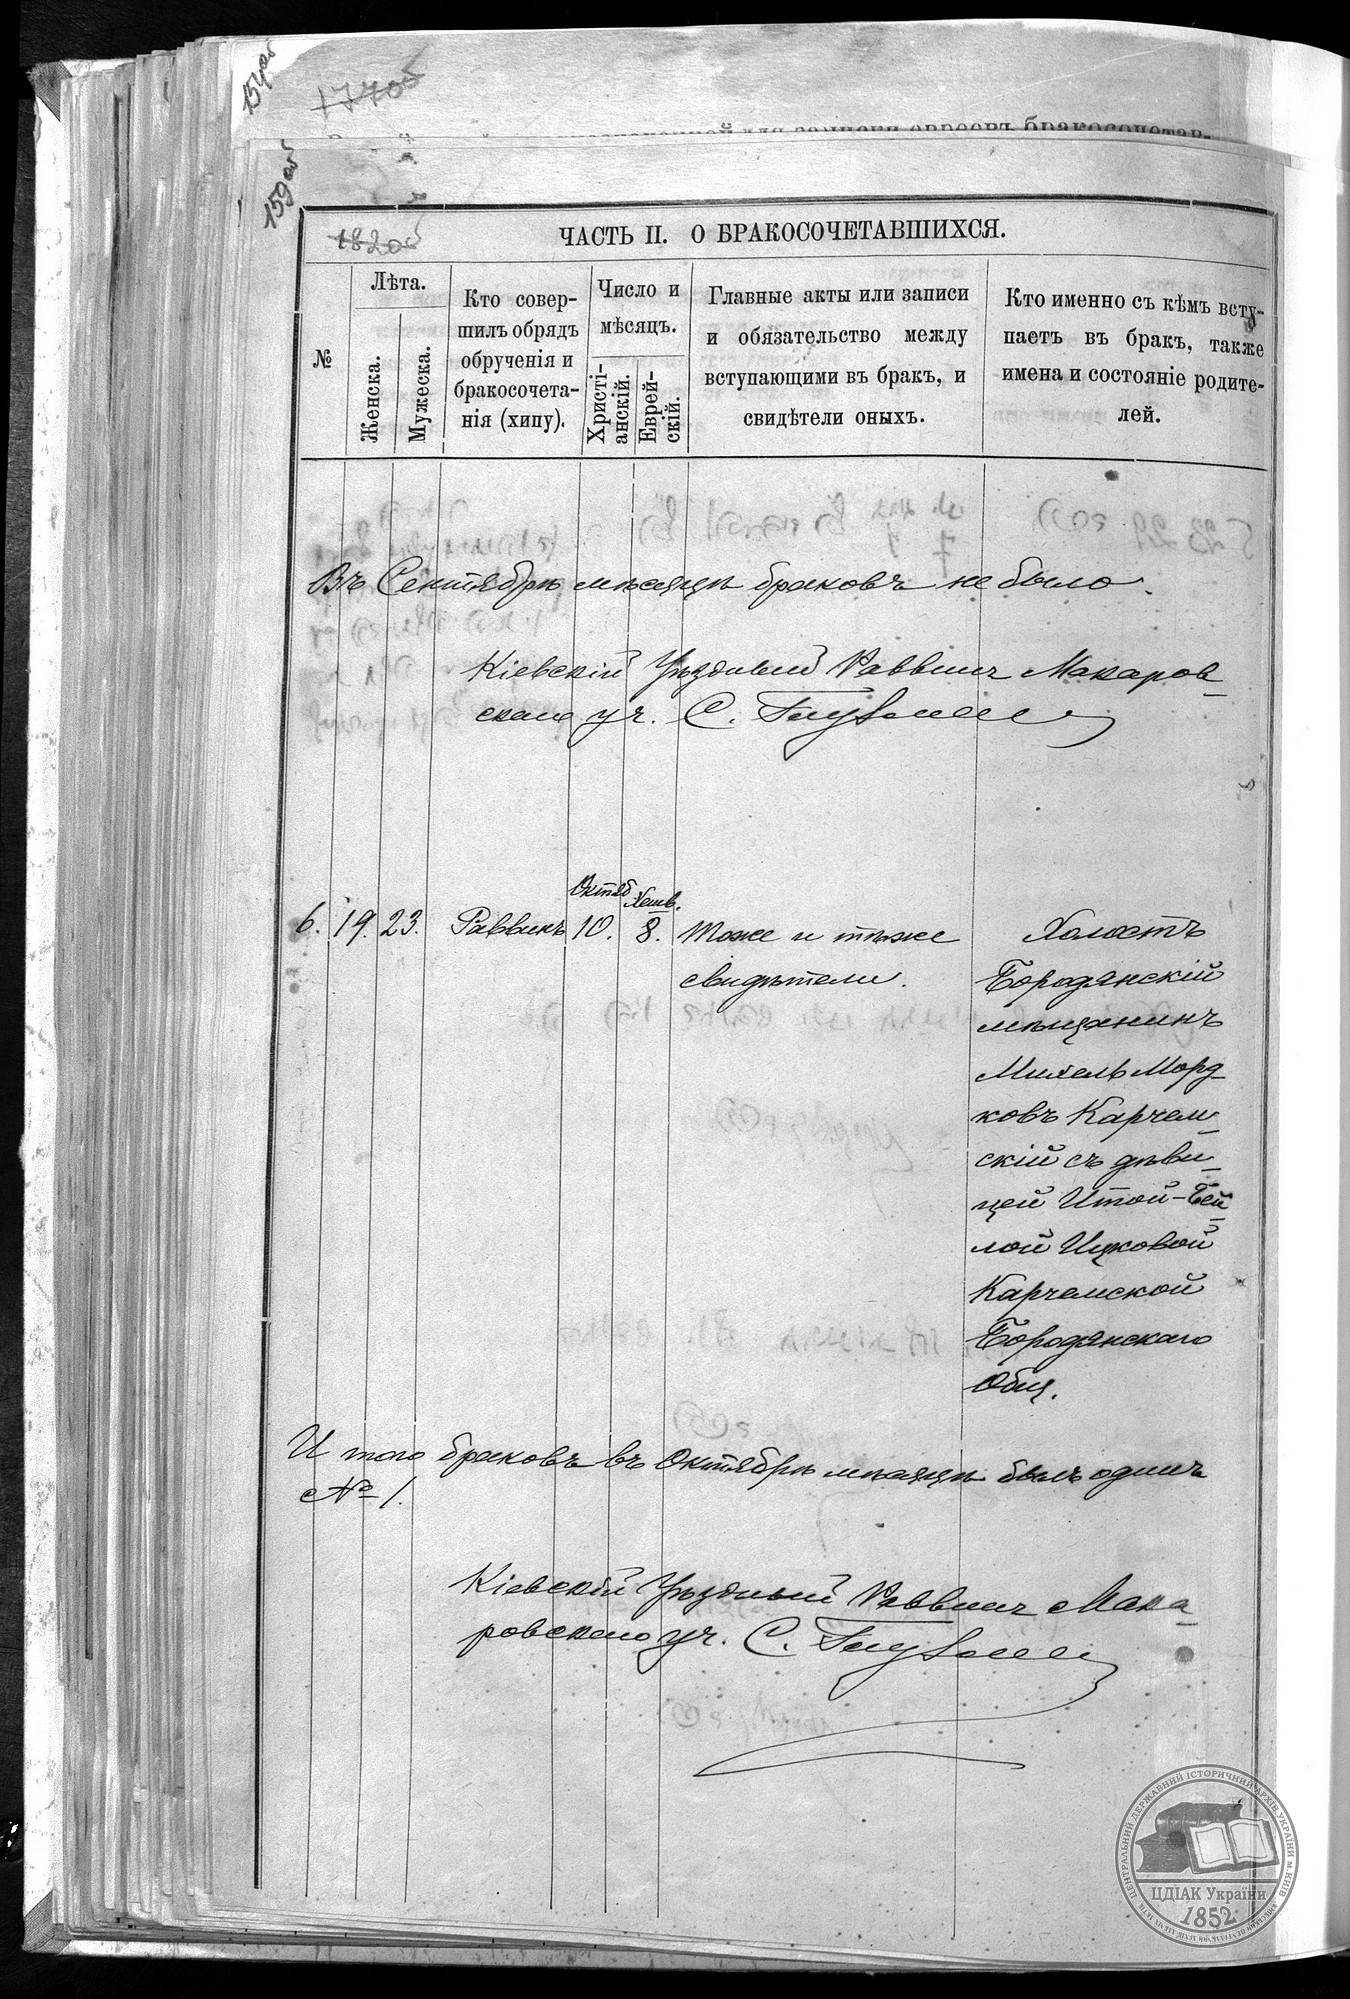 154об
177об
159об
182об
ЧАСТЬ II. О БРАКОСОЧЕТАВШИХСЯ.
№
Лѣта.
Женска.
Мужеска.
Кто совер-
шилъ обрядъ
обрученія и
бракосочета-
нія (хипу).
Число и
мѣсяцъ.
Христі-
анскій.
Еврей-
скій.
Главные акты или записи
и обязательство между
вступающими въ бракъ, и
свидѣтели оныхъ.
Кто именно съ кѣмъ всту-
паетъ въ бракъ, также
имена и состояніе родите-
лей.
Въ Сентябрѣ мѣсяцѣ браковъ не было.
Кіевскій Уѣздный Раввинъ Макаров-
скаго уч. С.
6. 19. 23. Раввинъ
Октяб
10.
Хешв.
8.
Тоже и тѣже
свидѣтели.
Холостъ
Бородянскій
мѣщанинъ
Михель Морд-
ковъ Карчем-
скій съ дѣви-
цей Итой-Бей-
лой Ицковой
Карчемской
Бородянскаго
Общ.
И того браковъ въ Октябрѣ мѣсяцѣ былъ одинъ
№ 1.
Кіевскій Уѣздный Раввинъ Мака-
ровскаго уч. С.
ЦЕНТРАЛЬНИЙ ДЕРЖАВНИЙ ІСТОРИЧНИЙ АРХІВ УКРАЇНИ м. КИЇВ
ЦДІАК України
1852